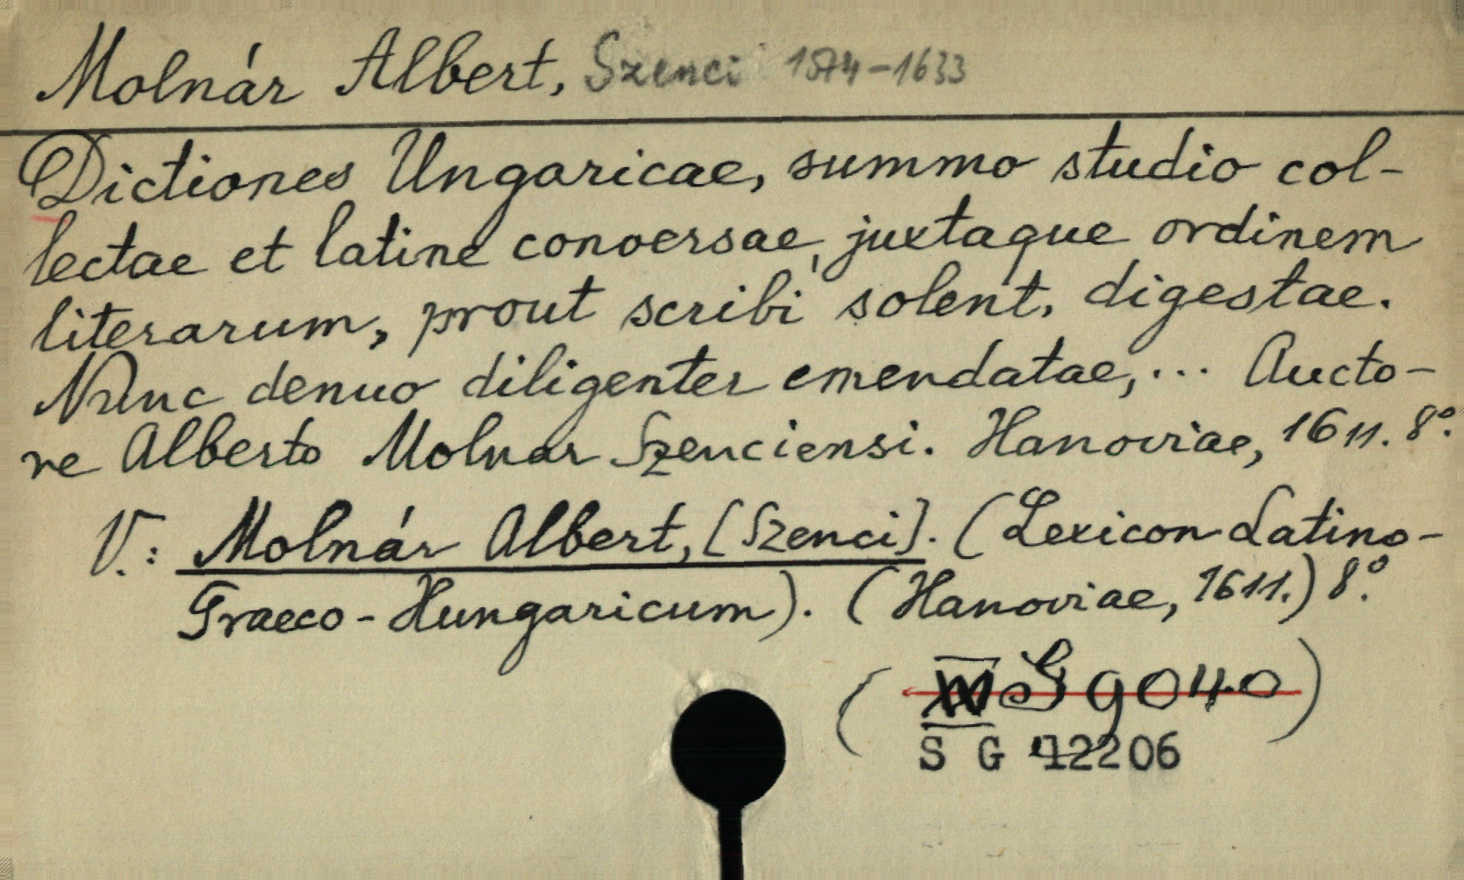 Molnár Albert, Szenci 1574-1633
Dictiones Ungaricae, summo studio col-
lectae et latine conversae, juxtaque ordinem
literarum, prout scribi solent, digestae.
Nunc denuo diligenter emendatae,... Aucto-
re Alberto Molnar Szenciensi. Hanoviae, 1611. 8º.
V.: Molnár Albert, [Szenci]. (Lexicon Latino-
Graeco-Hungaricum). (Hanoviae, 1611.) 8º.
( S 9040)
S G 42206